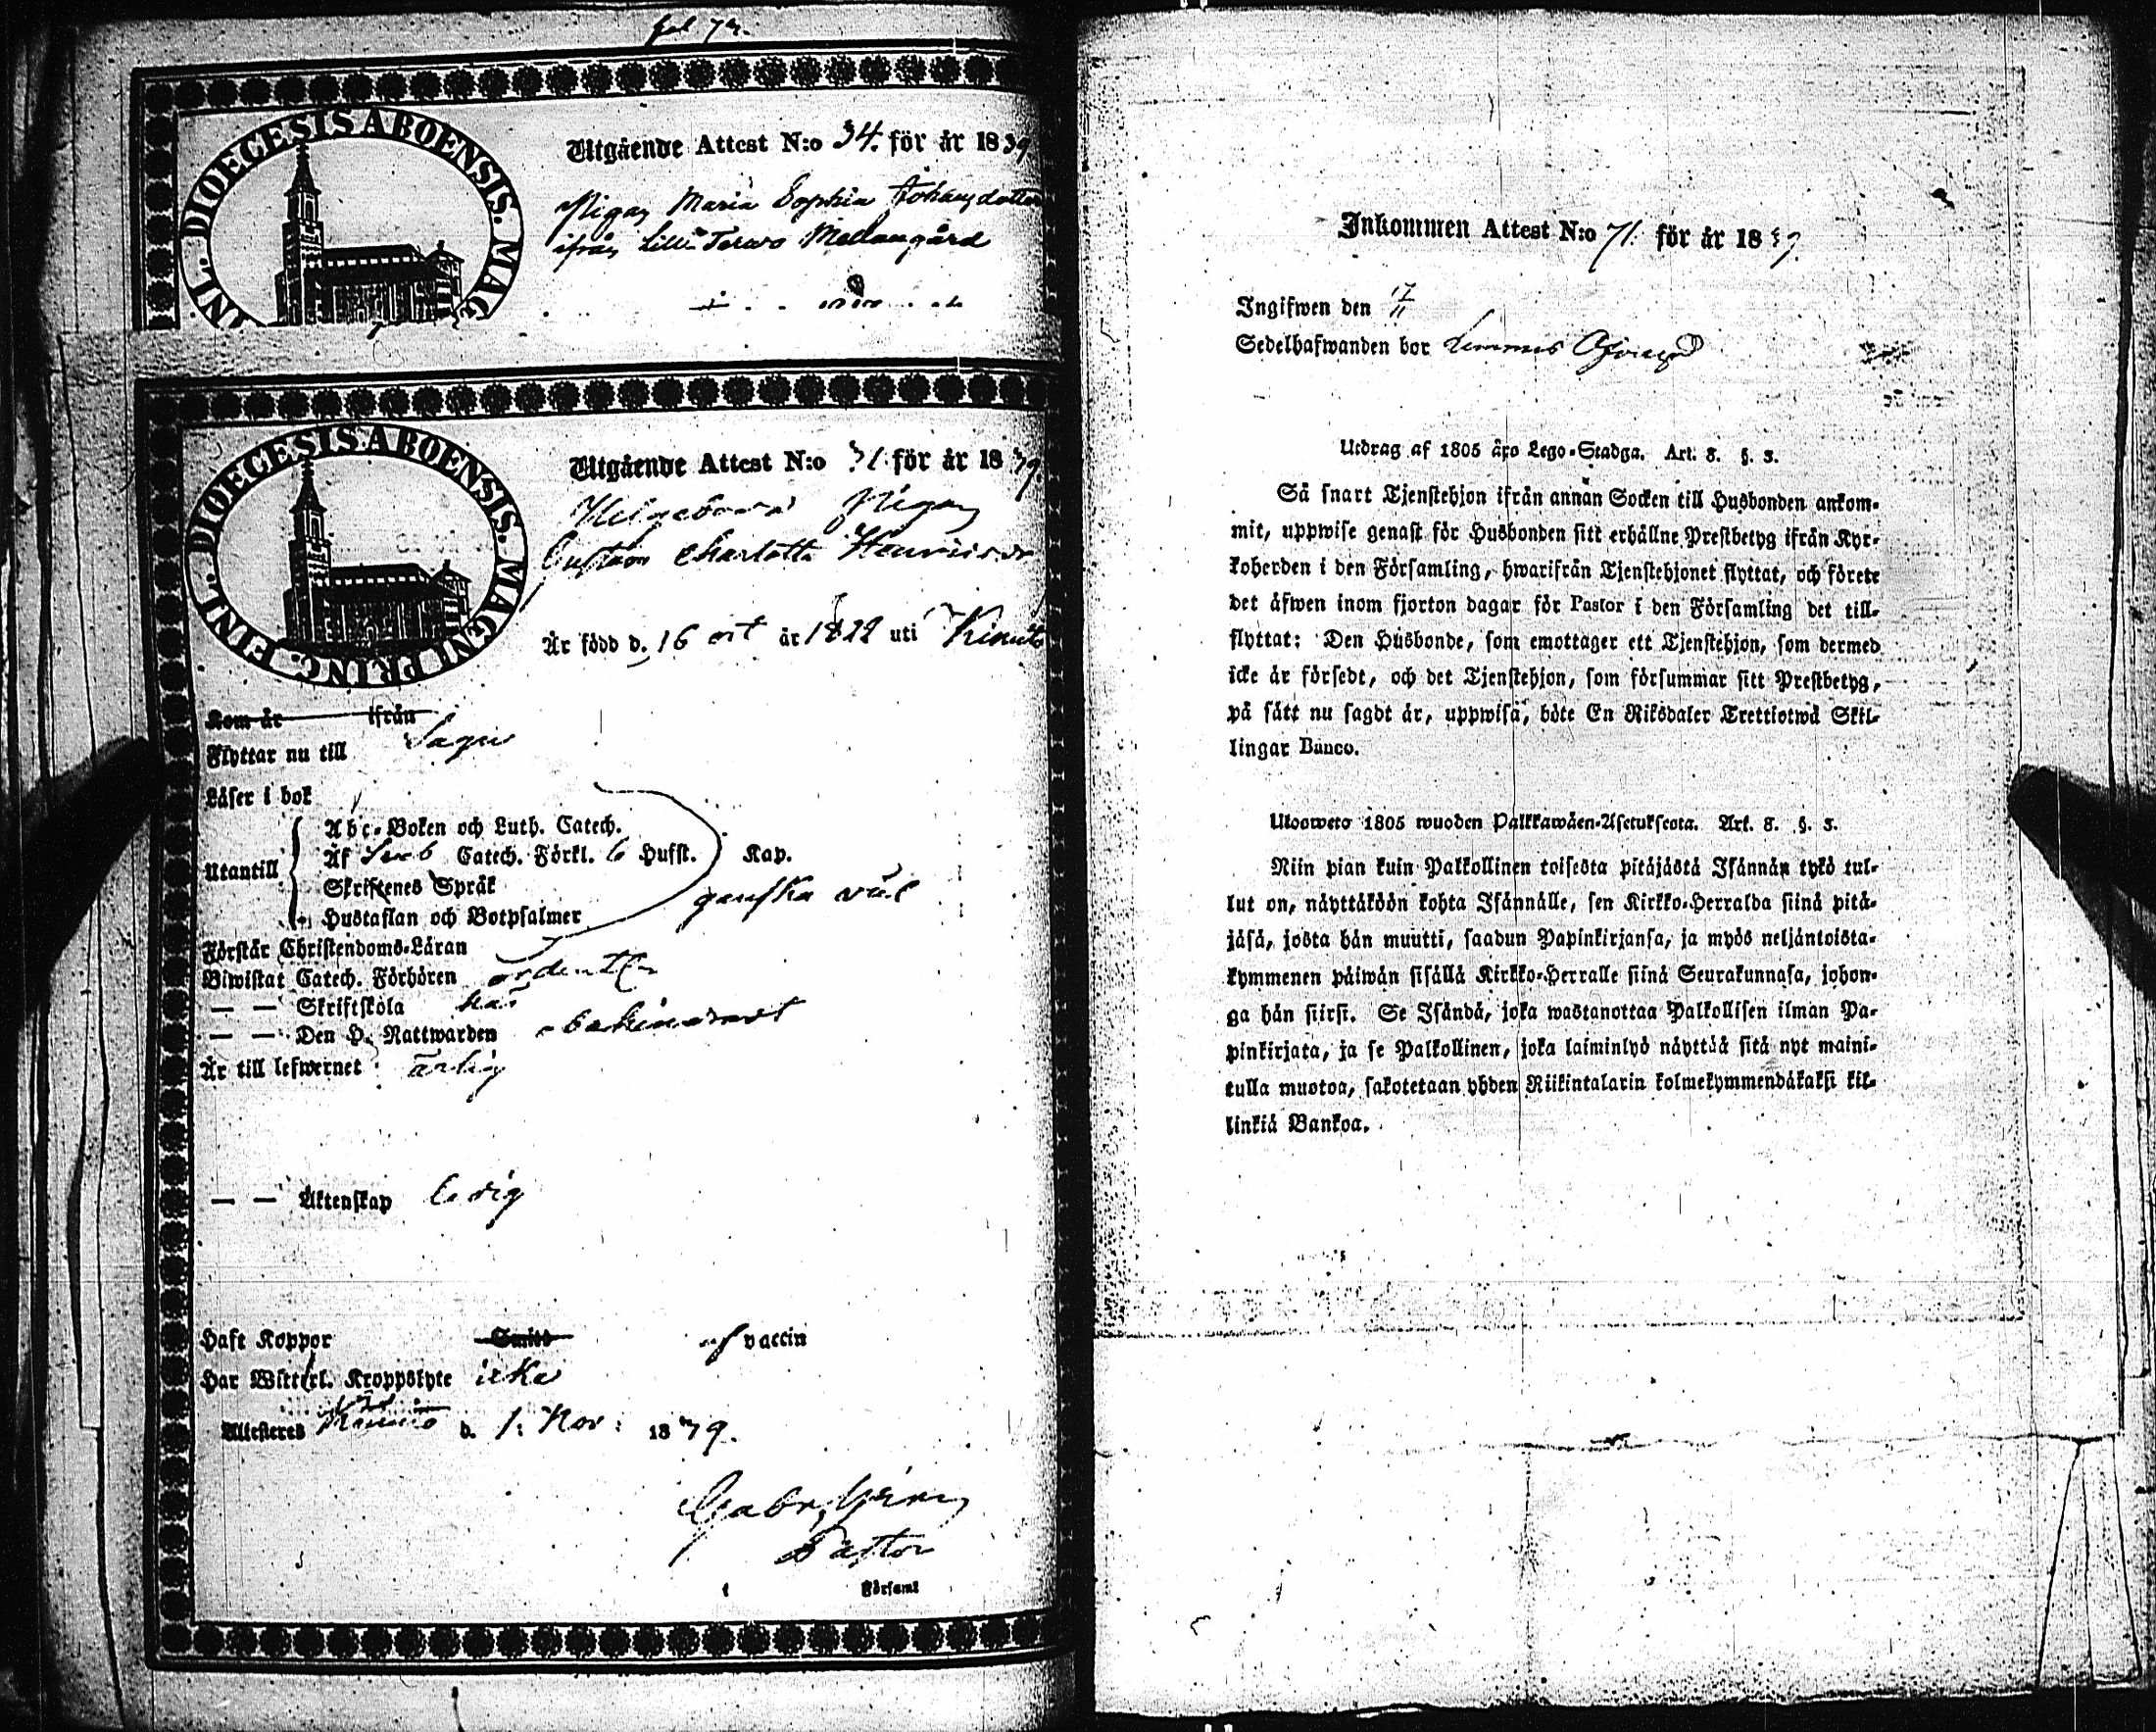 fol 72.
DIOECESIS ABOENSIS. MAG
INL.
Utgående Attest N:o 34. för år 1839
Pigan Maria Sophia Johansdotter
ifrån Lilla Terwo Mellangård
DIOECESIS ABOENSIS. MAGNI PRINC. FINL.
Utgående Attest N:o 31. för år 1839.
Pigan
Gustava Charlotta Henricsdr
Är född d. 16 oct år 1822 uti Kimito
Kom år ifrån
Flyttar nu till Sagu
Läser i bok
Utantill
Abc-Boken och Luth. Catech.
Af Sveb Catech. Förkl. 6 Hufst. Kap.
Skriftenes Språk
Hustaflan och Botpsalmer
ganska väl
Förstår Christendoms-Läran
Biwistat Catech. Förhören ordentl.
— — Skriftskola har
— — Den H. Nattwarden obehindradt
Är till lefwernet ärlig
— — Äktenskap ledig
Haft Koppor Smitt af vaccin
Har Witterl. Kroppslyte icke
Attesteres d. 1. Nov: 1839.
Gabr.
Pastor
i Församl
Inkommen Attest N:o 71. för år 1839.
Ingifwen den 17/11
Sedelhafwanden bor Lemmes Öfvergd
Utdrag af 1805 års Lego-Stadga. Art. 8. §. 3.
Så snart Tjenstehjon ifrån annan Socken till Husbonden ankom-
mit, uppwise genast för Husbonden sitt erhållne Prestbetyg ifrån Kyr-
koherden i den Församling, hwarifrån Tjenstehjonet flyttat, och förete
det äfwen inom fjorton dagar för Pastor i den Församling det till-
flyttat: Den Husbonde, som emottager ett Tjenstehjon, som dermed
icke är försedt, och det Tjenstehjon, som försummar sitt Prestbetyg,
på sätt nu sagdt är, uppwisa, böte En Riksdaler Trettiotwå Skil-
lingar Banco.
Uloswete 1805 wuoden Palkkawäen-Asetuksesta. Art. 8. §. 3.
Niin pian kuin Palkollinen toisesta pitäjästä Isännän tykö tul-
lut on, näyttäköön kohta Isännälle, sen Kirkko-Herralda siinä pitä-
jäsä, josta hän muutti, saadun Papinkirjansa, ja myös neljäntoista-
kymmenen päiwän sisällä Kirkko-Herralle siinä Seurakunnasa, johon-
ga hän siirsi. Se Isändä, joka wastanottaa Palkollisen ilman Pa-
pinkirjata, ja se Palkollinen, joka laiminlyö näyttää sitä nyt maini-
tulla muotoa, sakotetaan yhden Riikintalarin kolmekymmendäkaksi kil-
linkiä Bankoa.